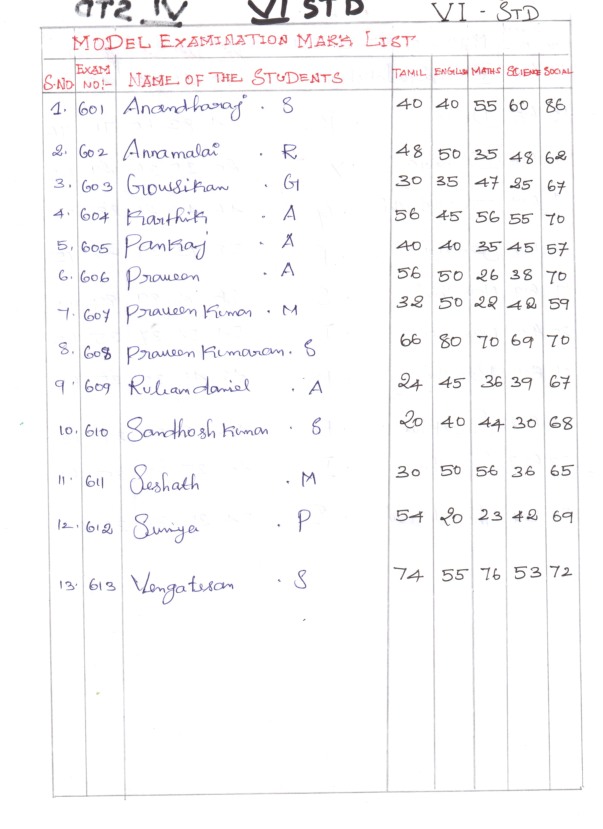 VI STD VI - STD
MODEL EXAMINATION MARK LIST
S.NO EXAM NO:- NAME OF THE STUDENTS TAMIL ENGLISH MATHS SCIENCE SOCIAL
1. 601 Anandharaj . S 40 40 55 60 86
2. 602 Annamalai . R 48 50 35 48 62
3. 603 Gowsikan . G 30 35 47 25 67
4. 604 Karthik . A 56 45 56 55 70
5. 605 Pankaj . A 40 40 35 45 57
6. 606 Praveen . A 56 50 26 38 70
7. 607 Praveen Kumar . M 32 50 22 42 59
8. 608 Praveen Kumaran . S 66 80 70 69 70
9. 609 Ruliandaniel . A 24 45 36 39 67
10. 610 Sandhosh Kumar . S 20 40 44 30 68
11. 611 Seshath . M 30 50 56 36 65
12. 612 Suniya . P 54 20 23 42 69
13. 613 Vengatesan . S 74 55 76 53 72